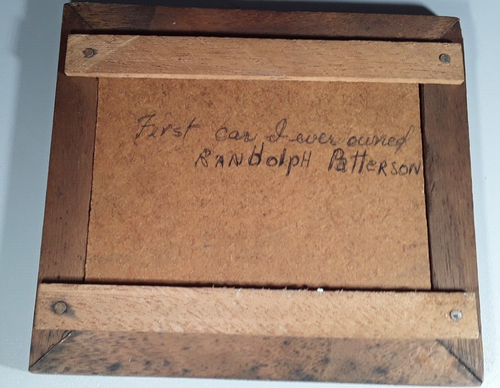 First car I ever owned
RANdolpH PatteRSON